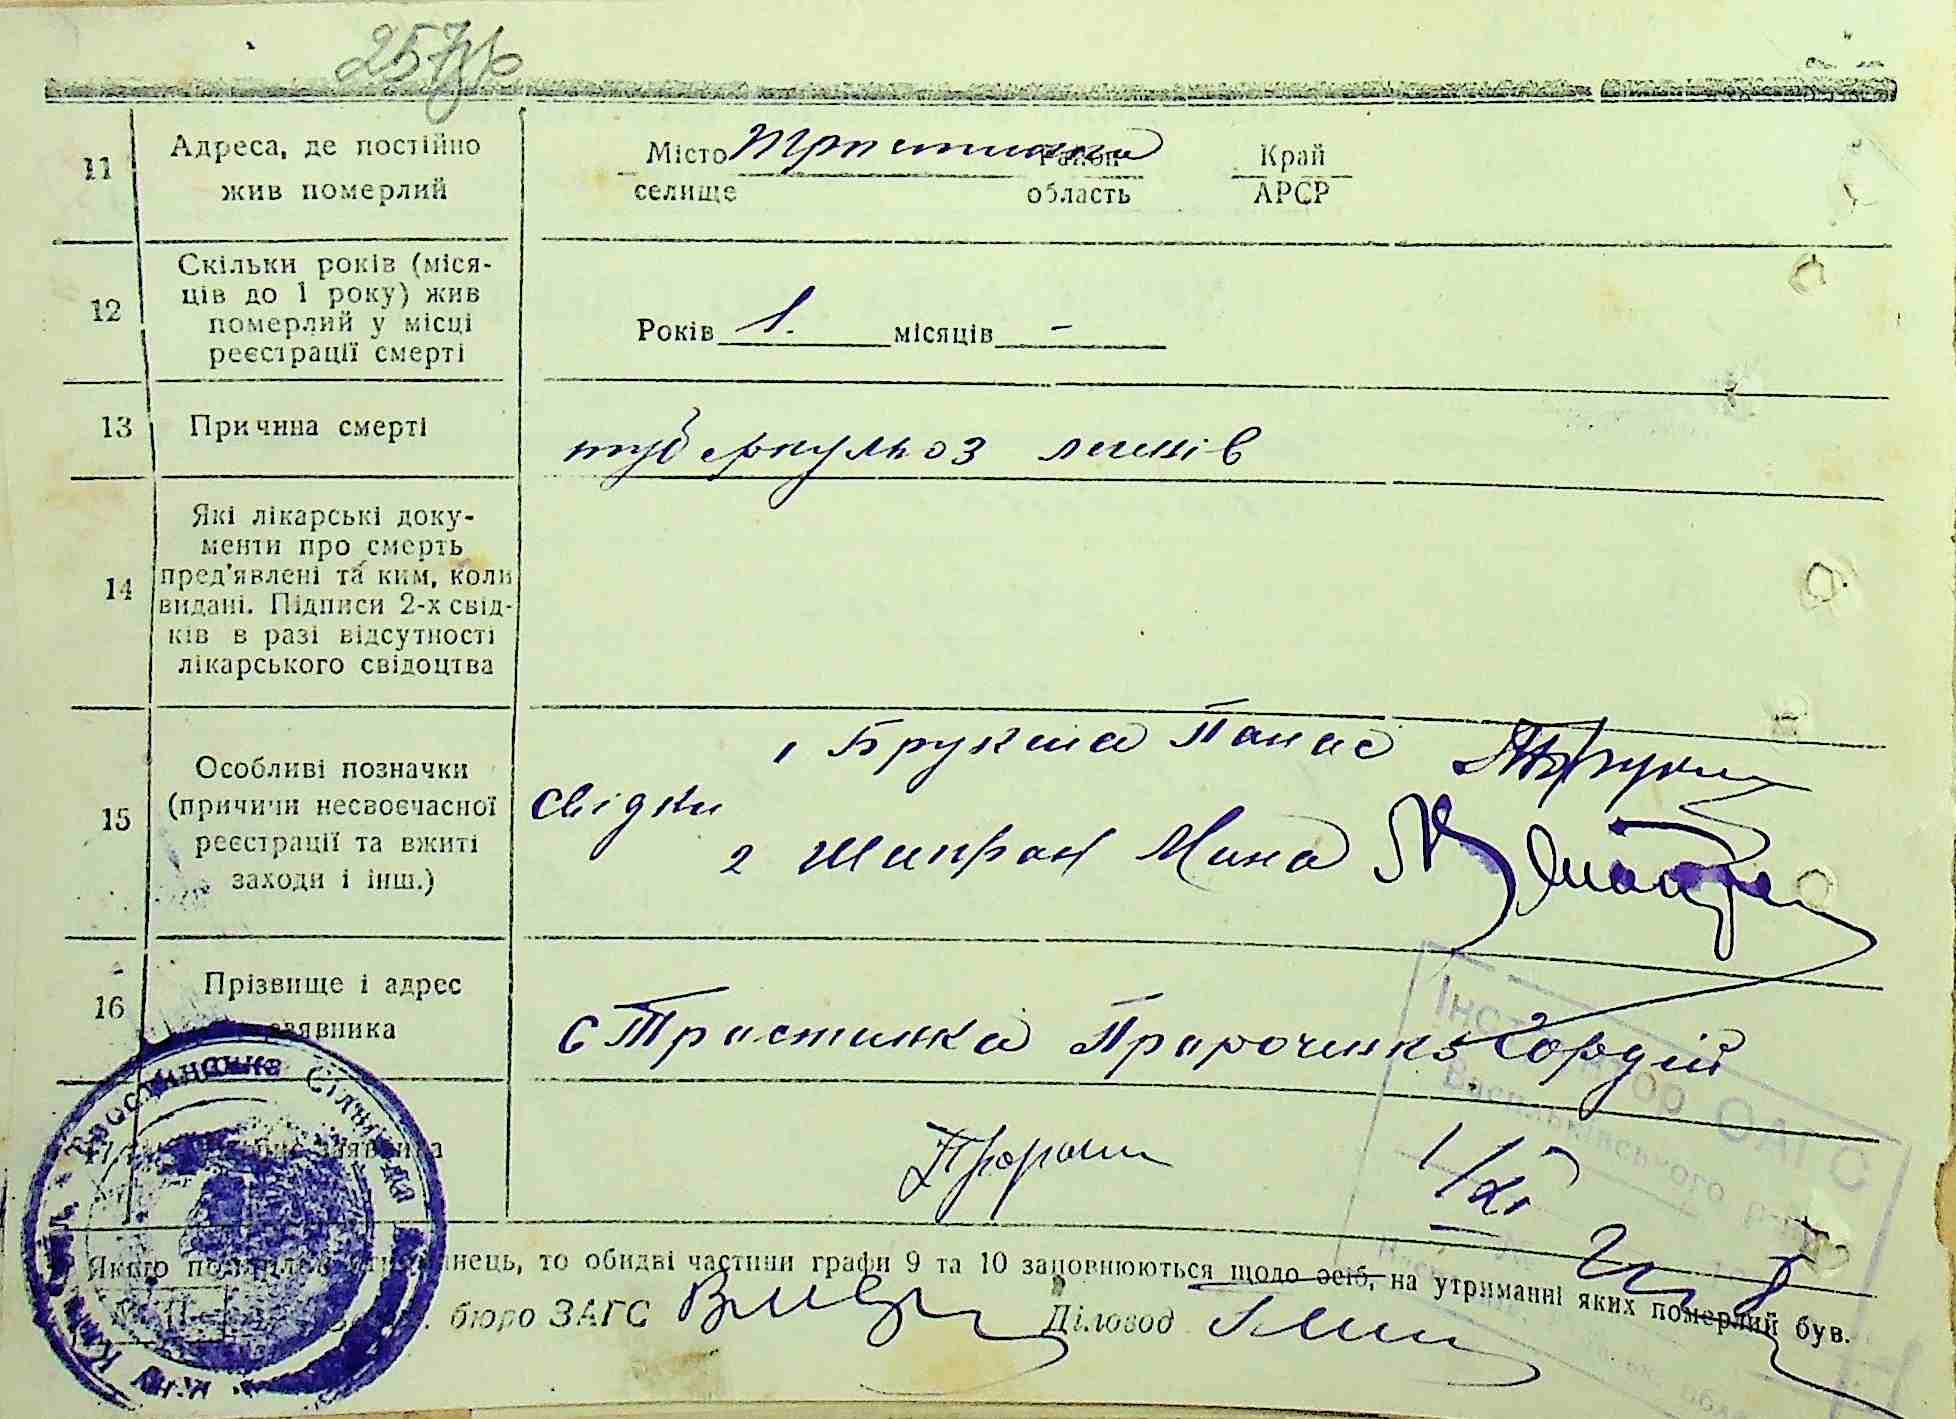 11
Адреса, де постійно
жив померлий
Місто
селище
Район
область
Край
АРСР
12
Скільки років (міся-
ців до 1 року) жив
померлий у місці
реєстрації смерті
Років 1. місяців -
13
Причина смерті
туберкульоз легенів
14
Які лікарські доку-
менти про смерть
пред'явлені та ким, коли
видані. Підписи 2-х свід-
ків в разі відсутності
лікарського свідоцтва
15
Особливі позначки
(причини несвоєчасної
реєстрації та вжиті
заходи і інш.)
свідки
1 Брукша Панас
2 Шапран Мина
16
Прізвище і адрес
заявника
с Тростинка Пророченко Гордій
1/XI
Інспектор ОАГС
Васильківського
Якщо то обидві частини графи 9 та 10 заповнюються щодо осіб, на утриманні яких померлий був.
бюро ЗАГС
Діловод